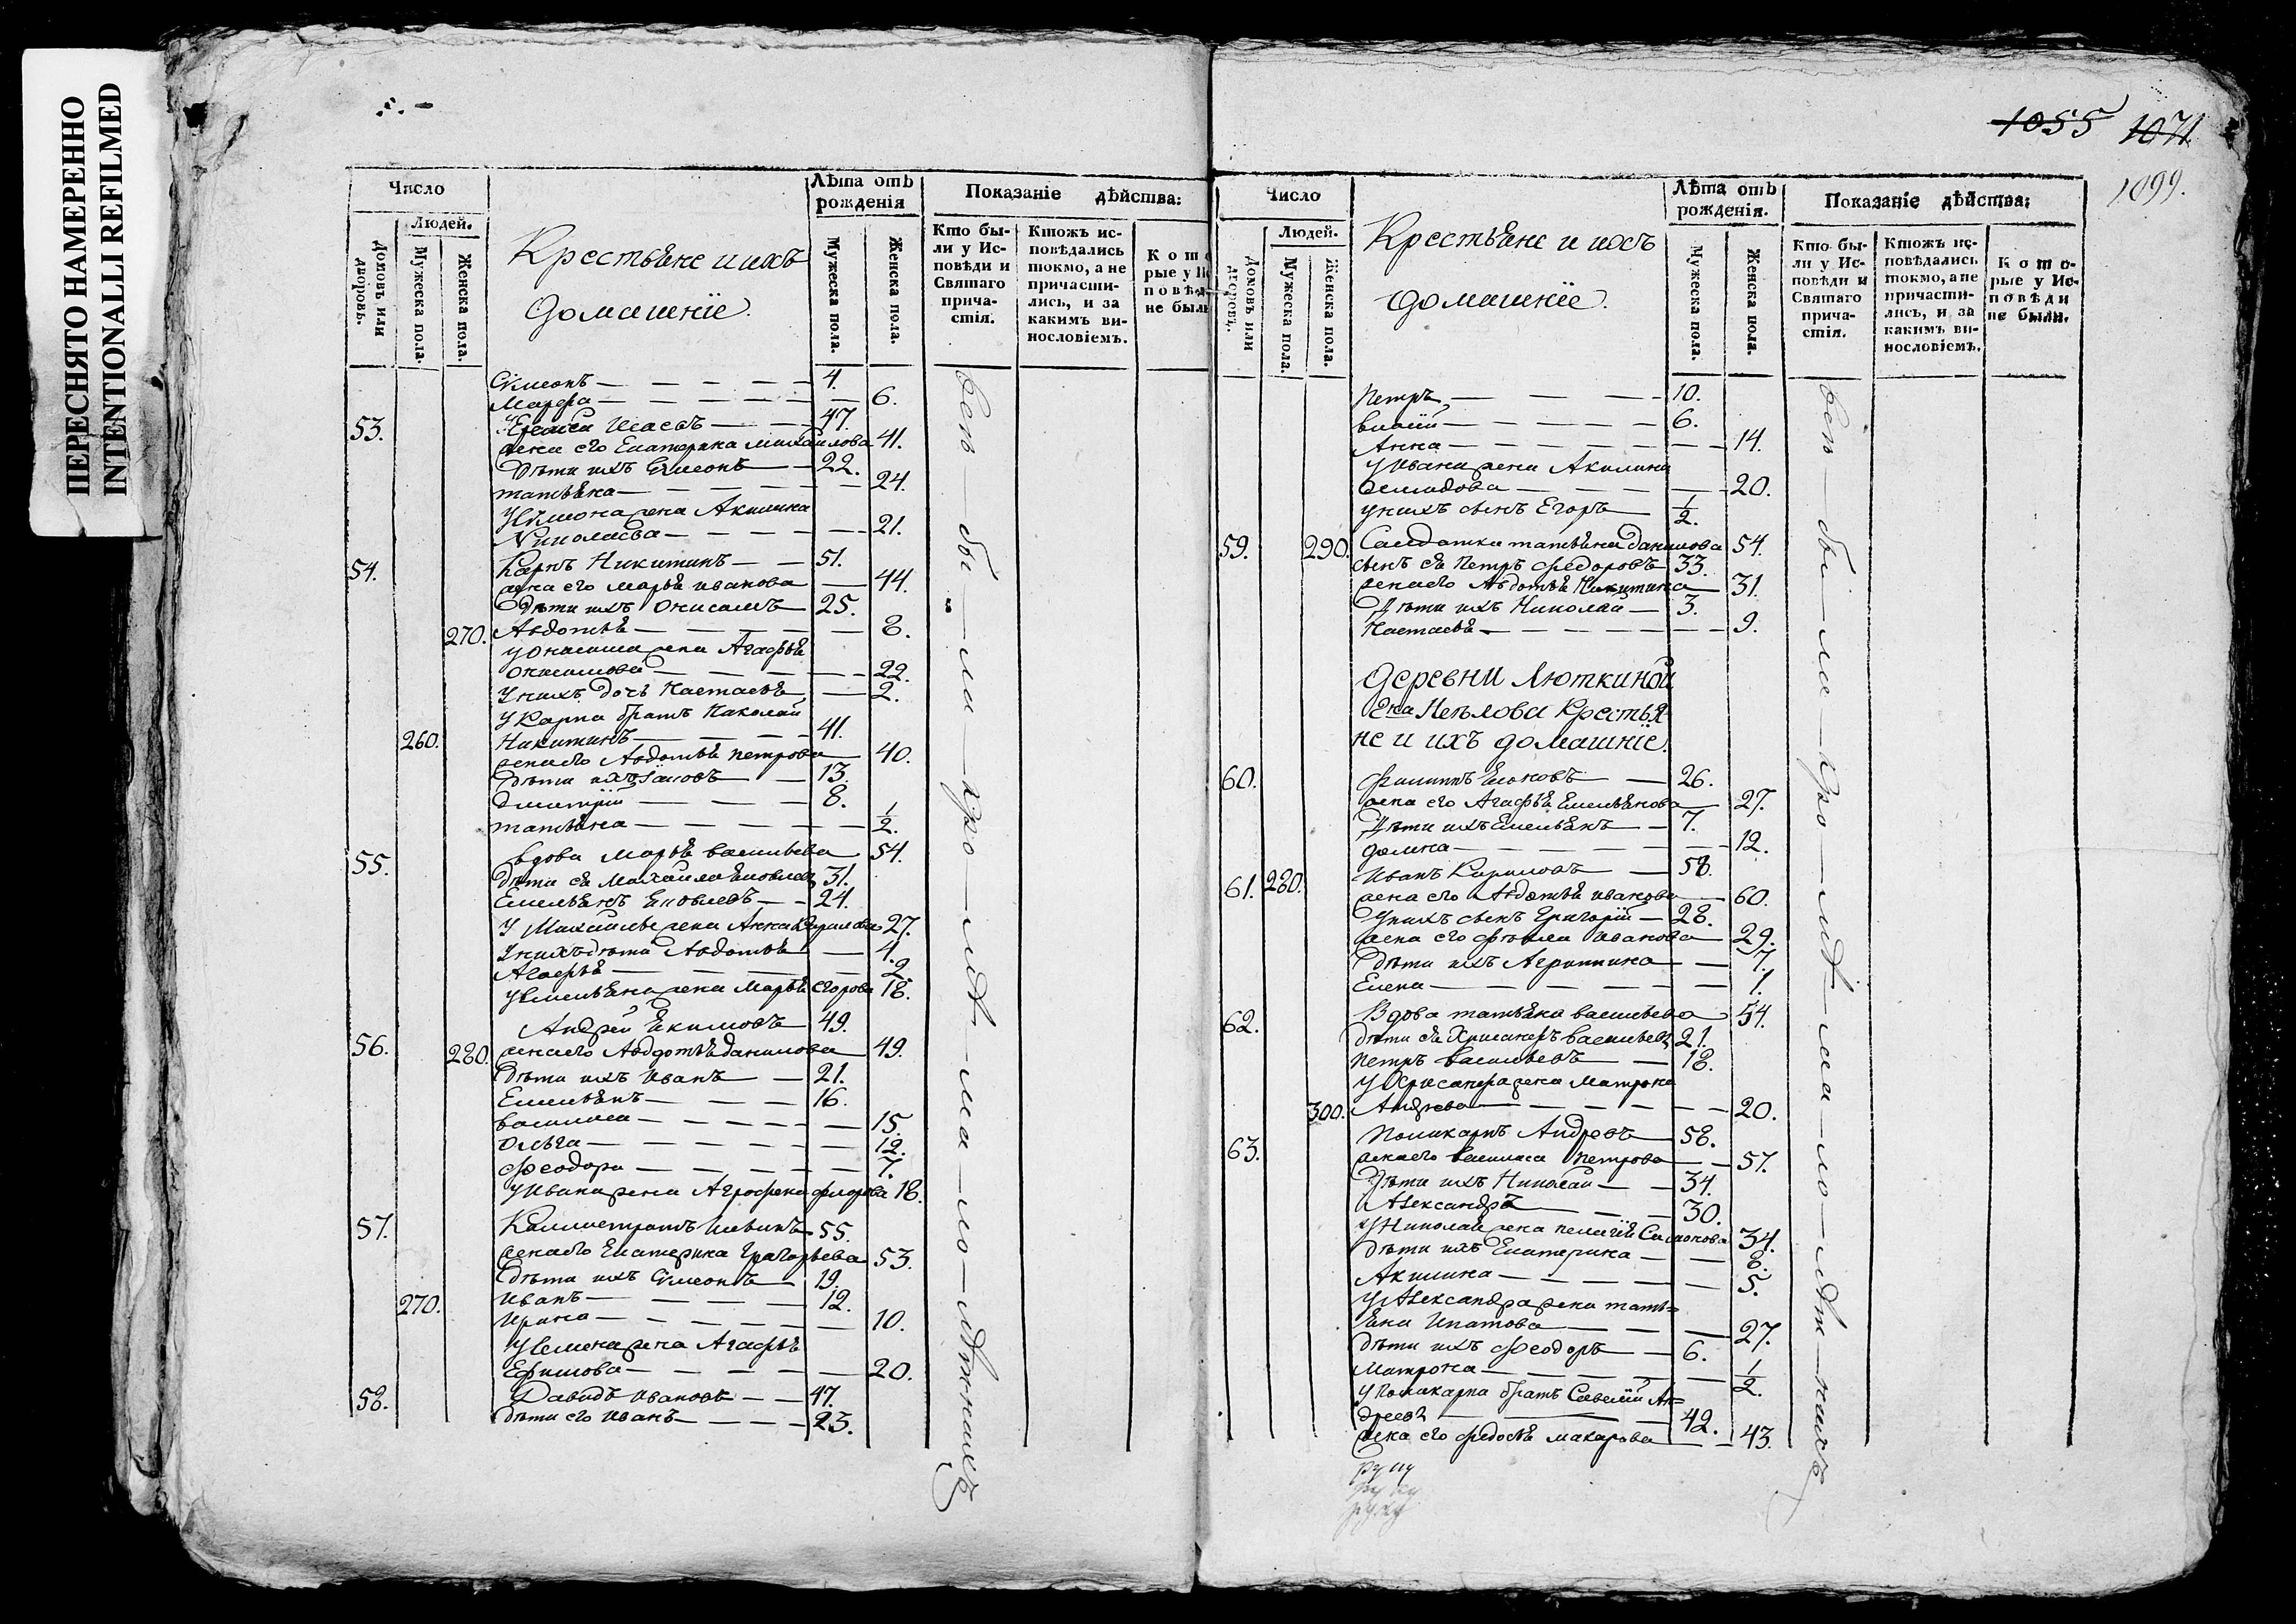 ПЕРЕСНЯТО НАМЕРЕННО
INTENTIONALLI REFILMED
Число
Людей.
Домовъ или дворовъ.
Мужеска пола.
Женска пола.
Крестьяне и ихъ
домашнїе.
Лѣта отъ рожденія
Мужеска пола.
Женска пола.
Показаніе дѣйства:
Кто бы-
ли у Ис-
повѣди и
Святаго
прича-
стія.
Ктожъ ис-
повѣдались
токмо, а не
причасти-
лись, и за
какимъ ви-
нословіемъ.
Кото
рые у Ис
повѣд
не был
Сѵмеонъ 4.
Марѳа 6.
53. 47.
жена его Екатерина Михайлова 41.
Дѣти ихъ Сѵмеонъ 22.
татьяна 24.
У Сѵмеона жена Акилина
Николаева 21.
54. Карпъ Никитинъ 51.
жена его марья иванова 44.
Дѣти ихъ Онисимъ 25.
270. Авдотья 8.
у Онисима жена Агафья
Онисимова 22.
У нихъ дочь Настасья 2.
У Карпа братъ Николай
260. Никитинъ 41.
жена его Авдотья петрова 40.
Дѣти ихъ Іаковъ 13.
Дмитрїй 8.
татьяна 1/2.
55. вдова Марья васильева 54.
Дѣти ея Михаила Яковлевъ 31.
Емельянъ Яковлевъ 24.
У Михайлы жена Анна Кирилова 27.
У нихъ дѣти Авдотья 4.
Агафья 2.
У Емельяна жена Марья Егорова 18.
56. Андрей Екимовъ 49.
280. жена его Авдотья данилова 49.
Дѣти ихъ Иванъ 21.
Емельянъ 16.
василиса 15.
Ольга 12.
Феодора 7.
У Ивана жена Аграфена 18.
57. Калистратъ 55.
жена его Екатерина Григорьева 53.
Дѣти ихъ Сѵмеонъ 19.
270. Иванъ 12.
Ирина 10.
У Семена жена Агафья
Ефимова 20.
58. Давидъ Ивановъ 47.
Дѣти его Иванъ 23.
всѣ бы-ли
1055 1071
1099.
Число
Людей.
Домовъ или дворовъ.
Мужеска пола.
Женска пола.
Крестьяне и ихъ
домашнїе.
Лѣта отъ рожденія.
Мужеска пола.
Женска пола.
Показаніе дѣйства:
Кто бы-
ли у Ис-
повѣди и
Святаго
прича-
стія.
Ктожъ ис-
повѣдались
токмо, а не
причасти-
лись, и за
какимъ ви-
нословіемъ.
Кото-
рые у Ис-
повѣди
не были.
Петръ 10.
6.
Анна 14.
У Ивана жена Акилина
Демидова 20.
у нихъ сынъ Егоръ 1/2.
59. 290. Салдатка татьяна данилова 54.
сынъ ея Петръ Федоровъ 33.
жена его Авдотья Никитина 31.
Дѣти ихъ Николай 3.
Настасья 9.
Деревни Люткиной
Неѣлова Крестья-
не и ихъ домашнїе.
60. Филиппъ 26.
жена его Агафья Емельянова 27.
Дѣти ихъ Емельянъ 7.
Домна 12.
61. 280. Иванъ Кириловъ 58.
жена его Авдотья иванова 60.
У нихъ сынъ Григорїй 28.
жена его Фекла Иванова 29.
Дѣти ихъ Агрипина 7.
Елена 1.
62. Вдова татьяна васильева 54.
Дѣти ея Хрисанфъ васильевъ 21.
петръ васильевъ 18.
У Хрисанфа жена Матрона
300. Андрѣева 20.
63. Поликарпъ Андреевъ 58.
жена его василиса Петрова 57.
Дѣти ихъ Николай 34.
Александръ 30.
У Николая жена пелагїя Симонова 34.
Дѣти ихъ Екатерина 8.
Акилина 5.
У Александра жена тать=
яна Ипатова 27.
Дѣти ихъ Феодоръ 6.
Матрона 1/2.
У Поликарпа братъ Савелїй Ан=
дреевъ 42.
жена его федосья макарова 43.
всѣ бы-ли
руку
руку
руку